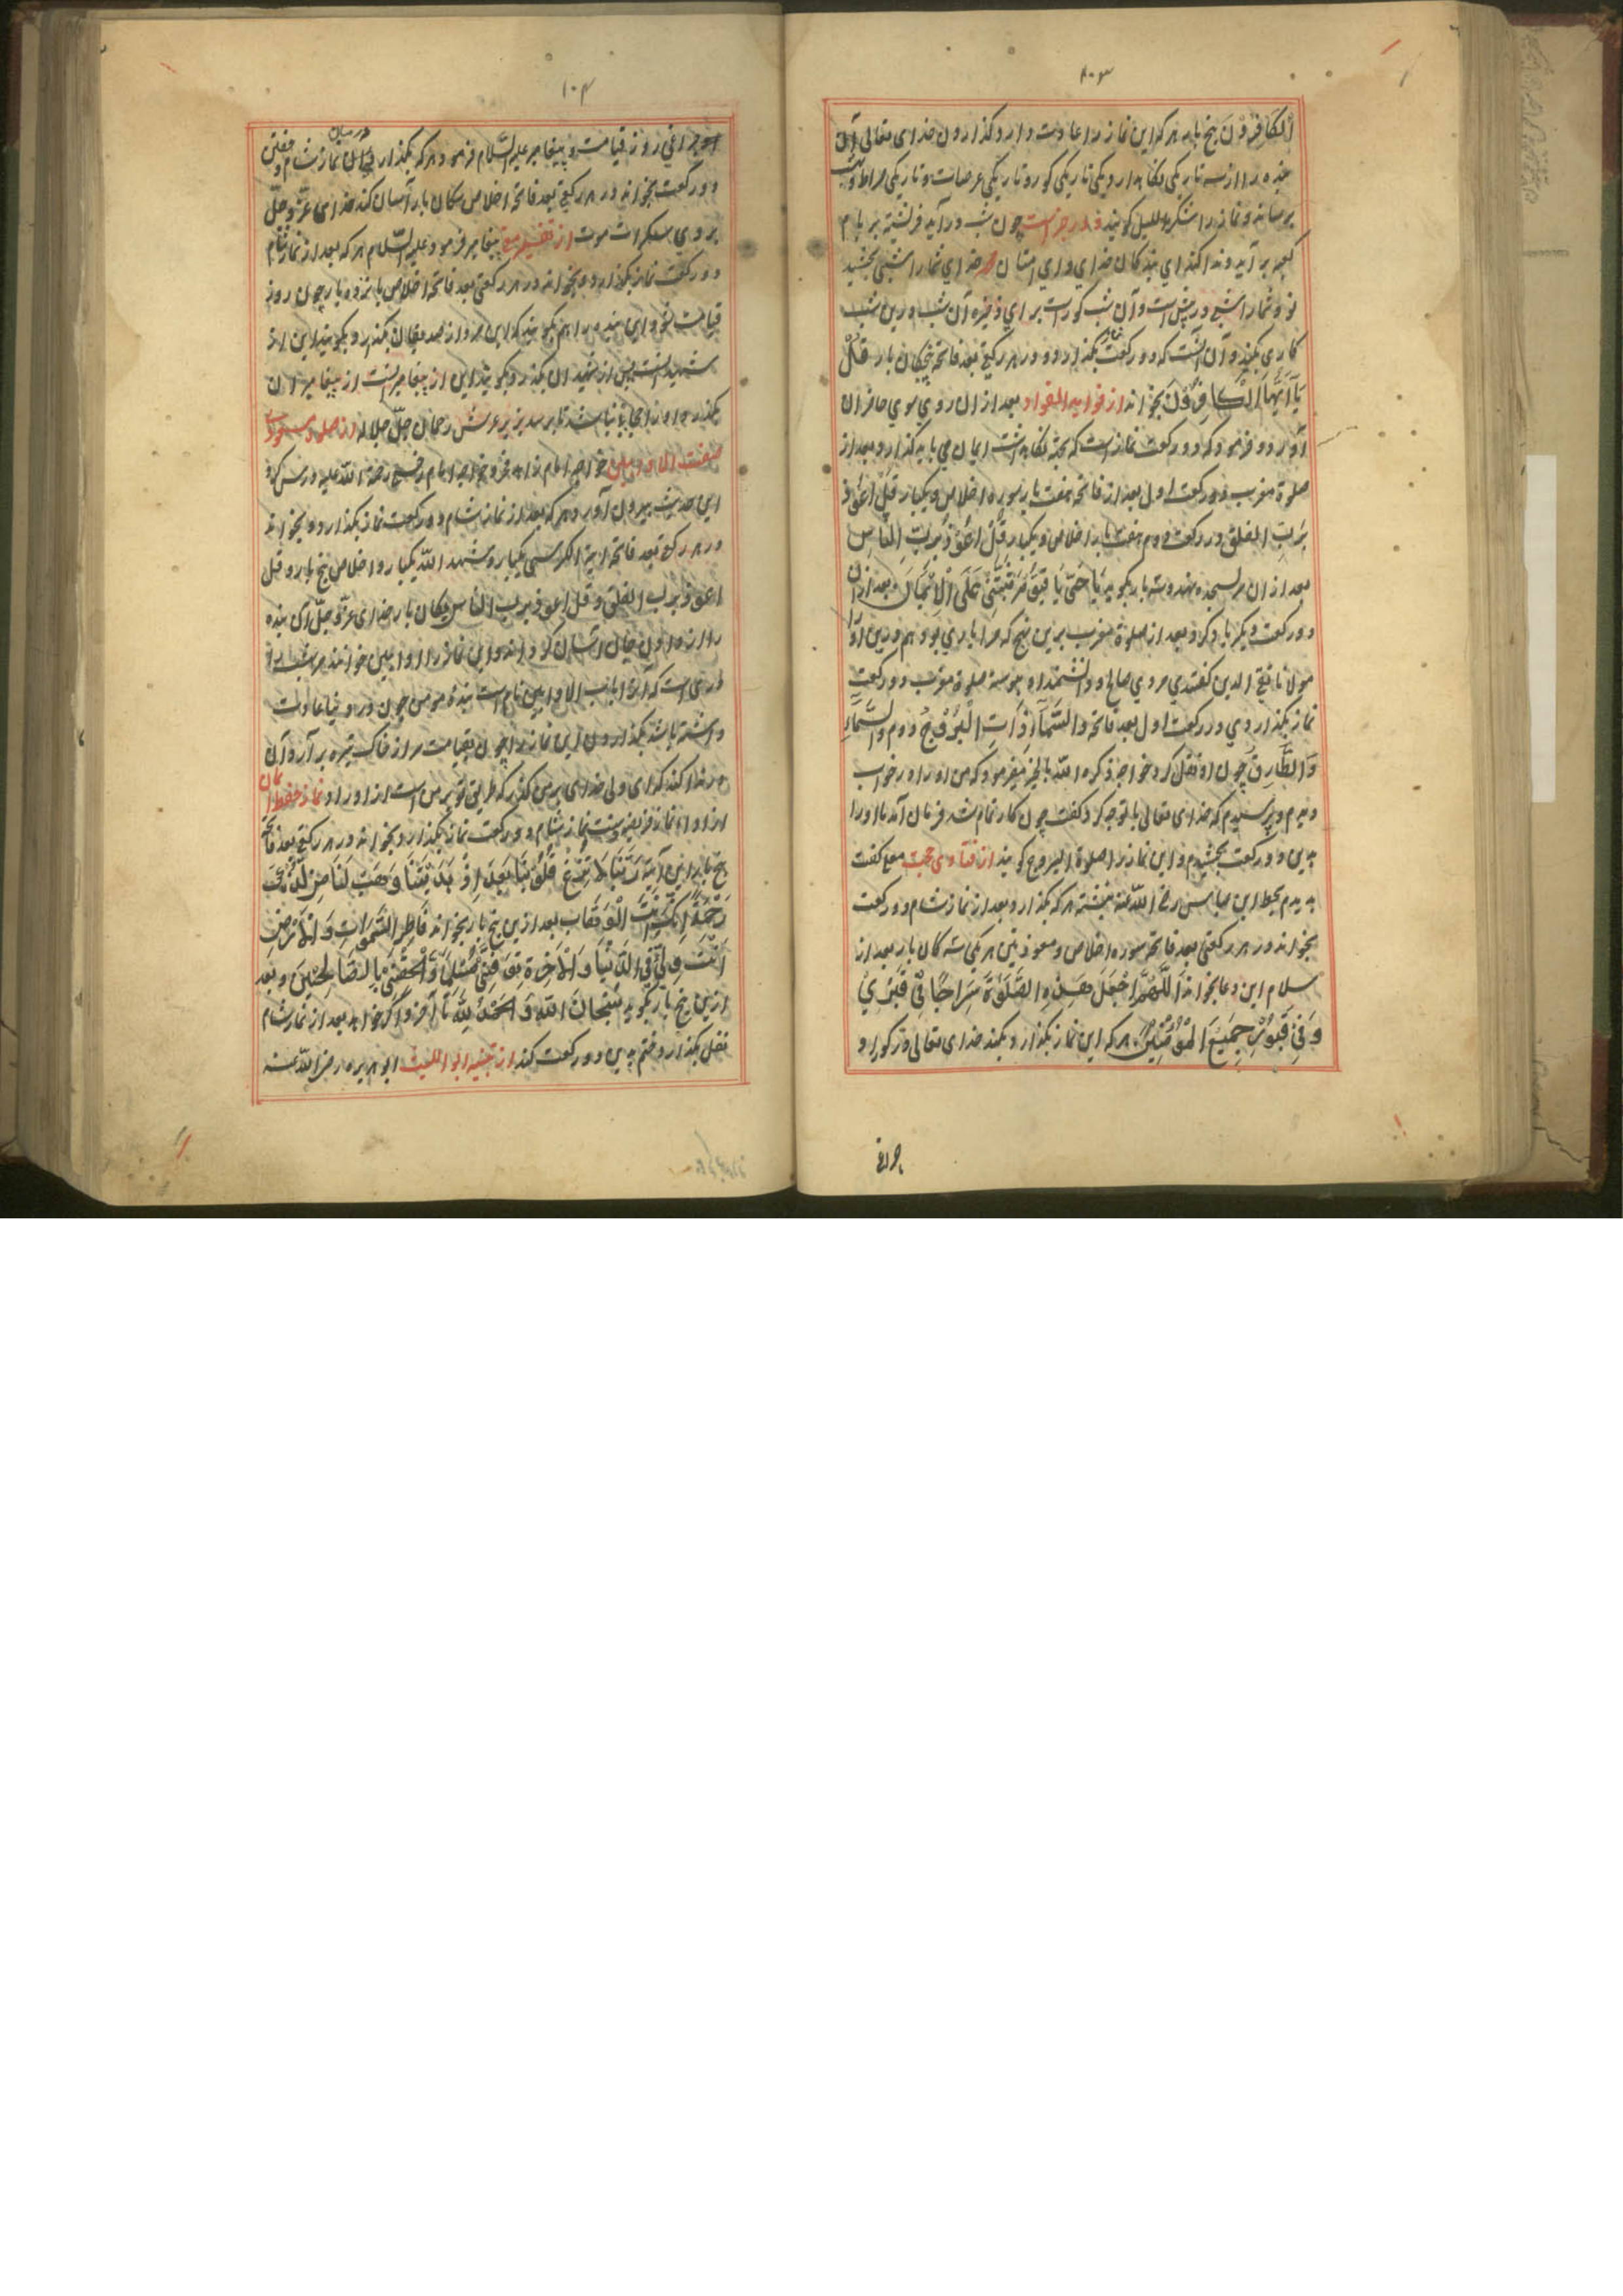 ۱۰۳
الْكَافِرُوْنَ پنج بار هر که این نماز را عادت دارد و گذاردن خدای تعالی آن
بنده را از سه تاریکی نگاه دارد یکی تاریکی گور و تاریکی عرصات و تاریکی صراط
برساند و نماز را شکر اللیل گویند در خبر است چون شب در آید فرشته بر بام
کعبه بر آید و ندا کند ای بندگان خدای و ای امتان خدای شما را شبی بخشید
نو و شما را شبی در پیش است و آن شب گور است برای ذخیره آن شب درین شب
کاری بکنید و آن اینست که دو رکعت نماز بگذارد و در هر رکعتی بعد فاتحه پنجگان بار قُلْ
يَآ اَيُّهَا الْكَافِرُوْنَ بخواند از فوائد الفواد بعد از آن روی سوی حاضران
آورد و فرمود که دو رکعت نماز است که بجهة نگاه داشت ایمان می باید گذارد و بعد از
صلوة مغرب در رکعت اول بعد از فاتحه هفت بار سوره اخلاص و یکبار قُلْ اَعُوْذُ
بِرَبِّ الْفَلَقِ در رکعت دوم هفت بار اخلاص و یکبار قُلْ اَعُوْذُ بِرَبِّ النَّاسِ
بعد از آن سر بسجده نهد و سه بار بگوید يَا حَيُّ يَا قَيُّوْمُ ثَبِّتْنِيْ عَلَى الْاِيْمَانِ و بعد از آن
دو رکعت دیگر یاد کرد بعد از صلوة مغرب برین نهج که مرا یاری بود هم درین
مولانا تقی الدین گفتندی مردی صالح و دانشمند او پیوسته صلوة مغرب دو رکعت
نماز بگذاردی در رکعت اول بعد فاتحه وَالسَّمَآءِ ذَاتِ الْبُرُوْجِ دوم وَالسَّمَآءِ
وَالطَّارِقِ چون او نقل کرد خواجه ذکره الله بالخیر میفرمود که من او را در خواب
دیدم و پرسیدم که خدای تعالی با تو چه کرد گفت چون کار تمام شد فرمان آمد ما او را
بدین دو رکعت بخشیدیم و این نماز را صلوة البروج گویند از فتاوی حجت مع گفت
دیدم بخط ابن عباس رضی الله عنه نبشته هر که بگذارد بعد از نماز شام دو رکعت
بخواند در هر رکعتی بعد فاتحه سوره اخلاص و معوذتین هر یکی سه گان بار بعد از
سلام این دعا بخواند اَللّٰهُمَّ اجْعَلْ هٰذِهِ الصَّلٰوةَ سِرَاجًا فِيْ قَبْرِيْ
وَ فِيْ قُبُوْرِ جَمِيْعِ الْمُؤْمِنِيْنَ هر که این نماز بگذارد بکند خدای تعالی در گور او
چراغی
۱۰۴
چراغی روز قیامت و پیغامبر علیه السّلام فرمود هر که بگذارد میان نماز شام و خفتن
دو رکعت بخواند در هر رکعتی بعد فاتحه اخلاص یگان بار آسان کند خدای عزّ و جلّ
بر وی سکرات موت از تفسیر پیغامبر فرمود علیه السّلام هر که بعد از نماز شام
دو رکعت نماز بگذارد و بخواند در هر رکعتی بعد فاتحه اخلاص پانزده بار چون روز
قیامت شود این بنده را هم گویند که این مرد از صدیقان بگذرد و گویند این از
شهید انست پس از شهیدان بگذرد و گویند این از پیغامبرانست از پیغامبران
بگذرد و او را حجاب نباشد تا برسد بزیر عرش رحمان جلّ جلاله از صلوة مسعودی
صفت الاوابین خواجه امام زاهد فخر و خواجه امام رحمة الله علیه درس کرد
این حدیث بیرون آورد هر که بعد از نماز شام دو رکعت نماز بگذارد و بخواند
در هر رکعتی بعد فاتحه آیة الکرسی یکبار و شهد الله یکبار و اخلاص پنج بار و قل
اعوذ برب الفلق و قل اعوذ برب الناس یگان بار خدای عزّ و جلّ آن بنده
را از اوابین گرداند و این نماز را اوابین خوانند در بهشت
دری است که آنرا باب الاوابین نام است بنده مومن چون در دنیا عادت
داشته باشد بگذاردن این نماز را چون بقیامت سر از خاک تیره بر آرد آن
در ندا کند که ای ولی خدای بر من گذر که طریق تو بر من است از اوراد نماز حفظ ایمان
از اداء نماز فریضه و سنت نماز شام دو رکعت نماز بگذارد و بخواند در هر رکعتی بعد فاتحه
پنج بار این آیه رَبَّنَا لَا تُزِغْ قُلُوْبَنَا بَعْدَ اِذْ هَدَيْتَنَا وَهَبْ لَنَا مِنْ لَّدُنْكَ
رَحْمَةً اِنَّكَ اَنْتَ الْوَهَّابُ بعد ازین پنج بار بخواند فَاطِرَ السَّمٰوَاتِ وَالْاَرْضِ
اَنْتَ وَلِيّٖ فِي الدُّنْيَا وَالْاٰخِرَةِ تَوَفَّنِيْ مُسْلِمًا وَّاَلْحِقْنِيْ بِالصَّالِحِيْنَ و بعد
ازین پنج بار بگوید سُبْحَانَ اللهِ وَالْحَمْدُ لِلّٰهِ تا آخر و اگر خواهد بعد از نماز شام
نفل بگذارد ختم بدین دو رکعت کند از تنبیه ابو اللیث ابو هریره رضی الله عنه